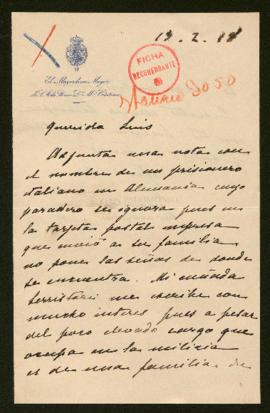 13.2.18
FICHA
RECORDANTE
El Mayordomo Mayor
de S. M. la Reina Dª Mª Cristina
Querido Luis
Adjunta una nota con
el nombre de un prisionero
italiano en Alemania cuyo
paradero se ignora pues en
la tarjeta postal impresa
que envió a su familia
no pone las señas de donde
se encuentra. Mi cuñada
me escribe con
mucho interes pues a pesar
del poco elevado cargo que
ocupa en la milicia
es de una familia de